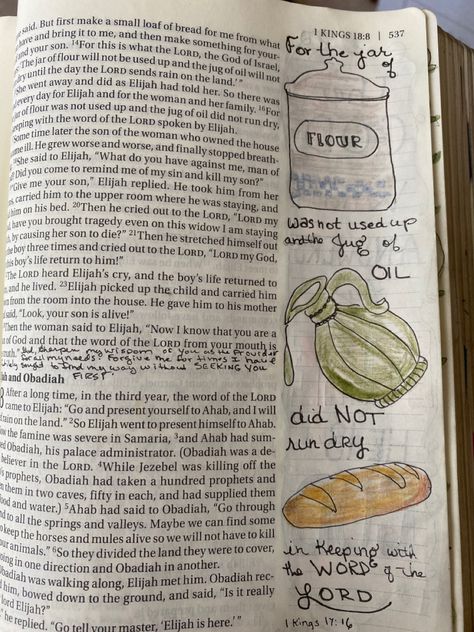 1 KINGS 18:8 | 537
said. But first make a small loaf of bread for me from what
have and bring it to me, and then make something for your-
and your son. 14For this is what the LORD, the God of Israel,
'The jar of flour will not be used up and the jug of oil will not
dry until the day the LORD sends rain on the land.'"
She went away and did as Elijah had told her. So there was
every day for Elijah and for the woman and her family. 16For
jar of flour was not used up and the jug of oil did not run dry,
keeping with the word of the LORD spoken by Elijah.
Some time later the son of the woman who owned the house
ill. He grew worse and worse, and finally stopped breath-
She said to Elijah, "What do you have against me, man of
Did you come to remind me of my sin and kill my son?"
"Give me your son," Elijah replied. He took him from her
carried him to the upper room where he was staying, and
him on his bed. 20Then he cried out to the LORD, "LORD my
have you brought tragedy even on this widow I am staying
by causing her son to die?" 21Then he stretched himself out
the boy three times and cried out to the LORD, "LORD my God,
this boy's life return to him!"
The LORD heard Elijah's cry, and the boy's life returned to
and he lived. 23Elijah picked up the child and carried him
from the room into the house. He gave him to his mother
said, "Look, your son is alive!"
Then the woman said to Elijah, "Now I know that you are a
of God and that the word of the LORD from your mouth is
my wisdom of You as the Provider
for my needs. Forgive me for times I have
sought to find my way without SEEKING YOU
FIRST.
and Obadiah
After a long time, in the third year, the word of the LORD
came to Elijah: "Go and present yourself to Ahab, and I will
rain on the land." 2So Elijah went to present himself to Ahab.
the famine was severe in Samaria, 3and Ahab had sum-
Obadiah, his palace administrator. (Obadiah was a de-
believer in the LORD. 4While Jezebel was killing off the
prophets, Obadiah had taken a hundred prophets and
them in two caves, fifty in each, and had supplied them
food and water.) 5Ahab had said to Obadiah, "Go through
to all the springs and valleys. Maybe we can find some
to keep the horses and mules alive so we will not have to kill
our animals." 6So they divided the land they were to cover,
going in one direction and Obadiah in another.
Obadiah was walking along, Elijah met him. Obadiah rec-
him, bowed down to the ground, and said, "Is it really
lord Elijah?"
he replied. "Go tell your master, 'Elijah is here.'"
For the jar
of
FLOUR
was not used up
and the Jug of
OIL
did NOT
run dry
in Keeping with
the WORD of the
LORD
1 Kings 17:16